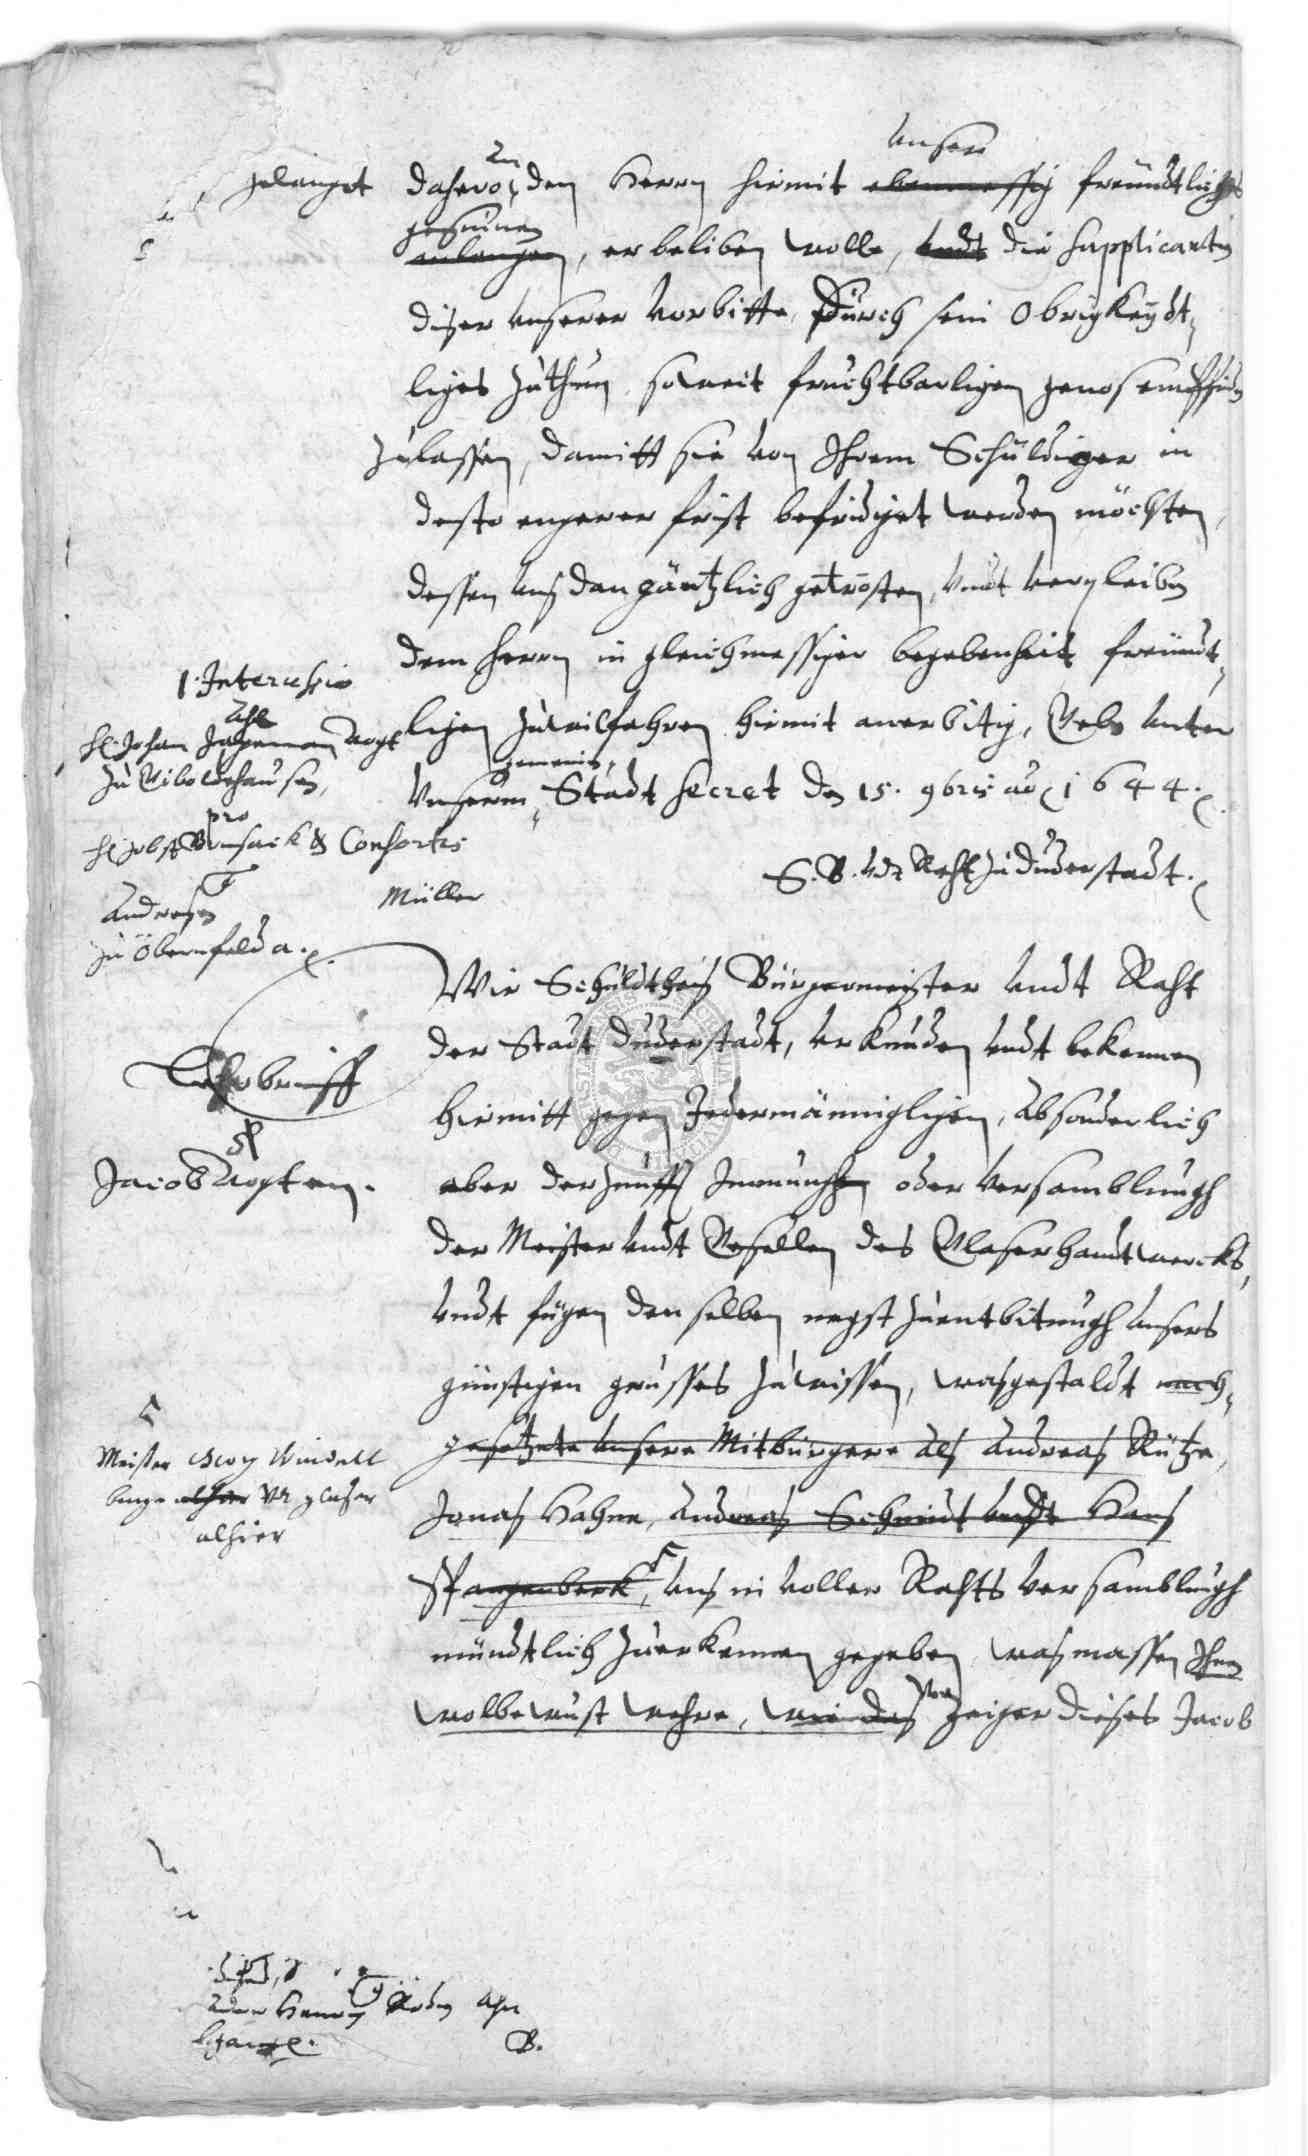 gelanget dahero an den Herrn hirmit ebenmessig unser freündtliches
gesinnen
anlangen, er beliben wolle, undt die supplicanten
diser unserer vorbitte, Durch sein Obrigkeydt-
liges zuthun, soweit fruchtbarligen genos empfinden
zulassen, damitt sie von Ihrem Schüldiger in
desto engerer frist befridiget werden möchten,
dessen uns dan gäntzlich getrösten, undt verpleiben
dem Herrn in gleichmessiger begebenheit freündt-
ligen zuwilfahren hirmit anerbitig, Geben unter
gemeinen
unserm Stadt secret den 15. 9bris ao 1644.
S. B. undt Raht zu Duderstadt.
1. Intercessio
H. Johan vogt
zu Giboldehausen,
pro
H. Jobst & Consorten
Andresen Müller
zu Obernfelda.
Wir Schuldtheis Bürgermeister undt Raht
der Stadt Duderstadt, urkunden undt bekennen
hirmitt gegen Jedermänniglichen, absonderlich
aber der zunfft Innunghen oder versamblungh
der Meister undt Gesellen des Glaserhandtwercks,
undt fügen denselben negst zuentbitungh unsers
günstigen grusses zuwissen, wasgestaldt nach-
gesetzete unsere Mitbürgere als Andreas Kütze,
Jonas Hahne, Andreas Schmidt undt Hans
Spangenberk, uns in voller Rahts versamblungh
mündtlich zuerkennen gegeben, wasmassen Ihnen
wolbewust wehre, wie das zeiger dieses Jacob
Lehrbrieff
Jacob Vogten.
Meister Georg Windell
burger alhier glaser
alhier
Henry
B.